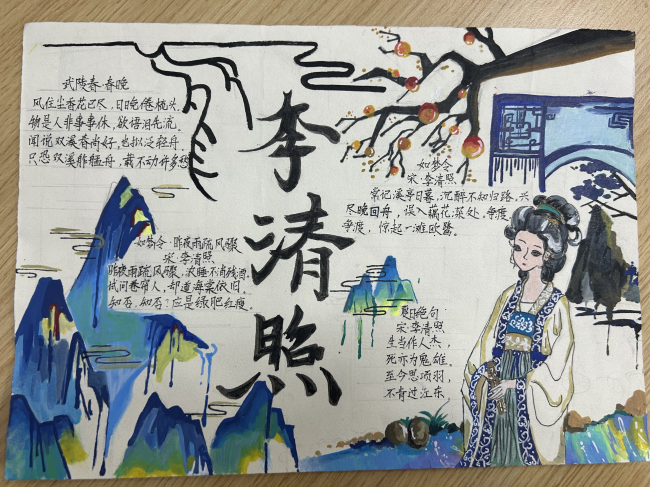 武陵春·春晚
风住尘香花已尽，日晚倦梳头。
物是人非事事休，欲语泪先流。
闻说双溪春尚好，也拟泛轻舟，
只恐双溪舴艋舟，载不动许多愁
李清照
如梦令
宋·李清照
常记溪亭日暮，沉醉不知归路。兴
尽晚回舟，误入藕花深处。争度，
争度，惊起一滩欧鹭。
如梦令·昨夜雨疏风骤
宋·李清照
昨夜雨疏风骤，浓睡不消残酒，
试问卷帘人，却道海棠依旧。
知否，知否：应是绿肥红瘦。
夏日绝句
宋·李清照
生当作人杰，
死亦为鬼雄。
至今思项羽，
不肯过江东，